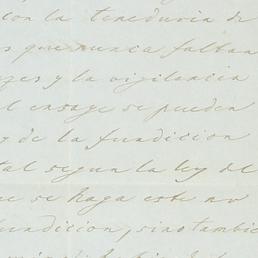 con la teneduria de
que nunca faltan
y la vigilancia
el ensaye se pueden
de la fundicion
tal segun la ley de
se haga este no
fundicion, sino tambie